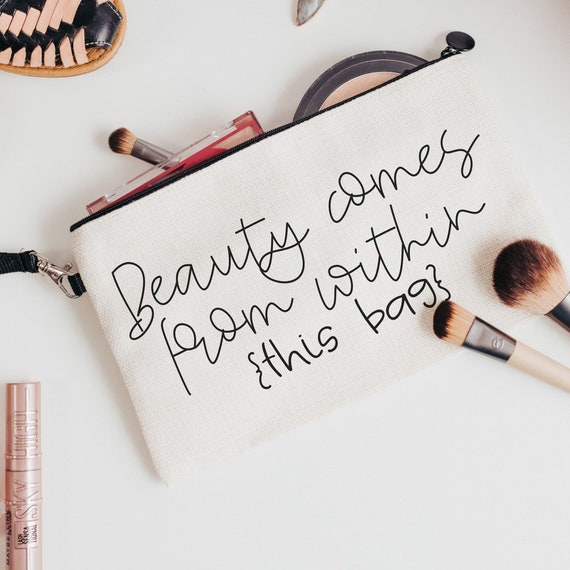 Beauty comes
from within
{this bag}
SKY HIGH
LASH SENSATIONAL
MAYBELLINE